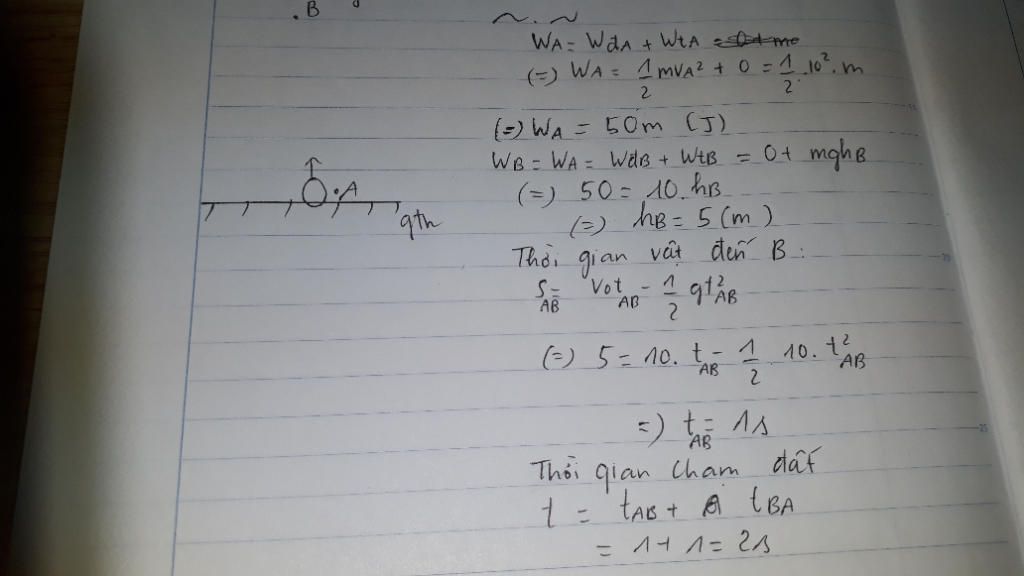 . B
W_A = W_{dA} + W_{tA} = 0 + m
(=) W_A = \frac{1}{2} mV_A² + 0 = \frac{1}{2} . 10² . m
(=) W_A = 50m (J)
W_B = W_A = W_{dB} + W_{tB} = 0 + mgh_B
(=) 50 = 10. h_B
. A
gth
(=) h_B = 5 (m)
Thời gian vật đến B :
S_{AB} = V_0t_{AB} - \frac{1}{2} gt²_{AB}
(=) 5 = 10. t_{AB} - \frac{1}{2} 10. t²_{AB}
=) t_{AB} = 1s
Thời gian chạm đất
t = t_{AB} + t_{BA}
= 1 + 1 = 2s